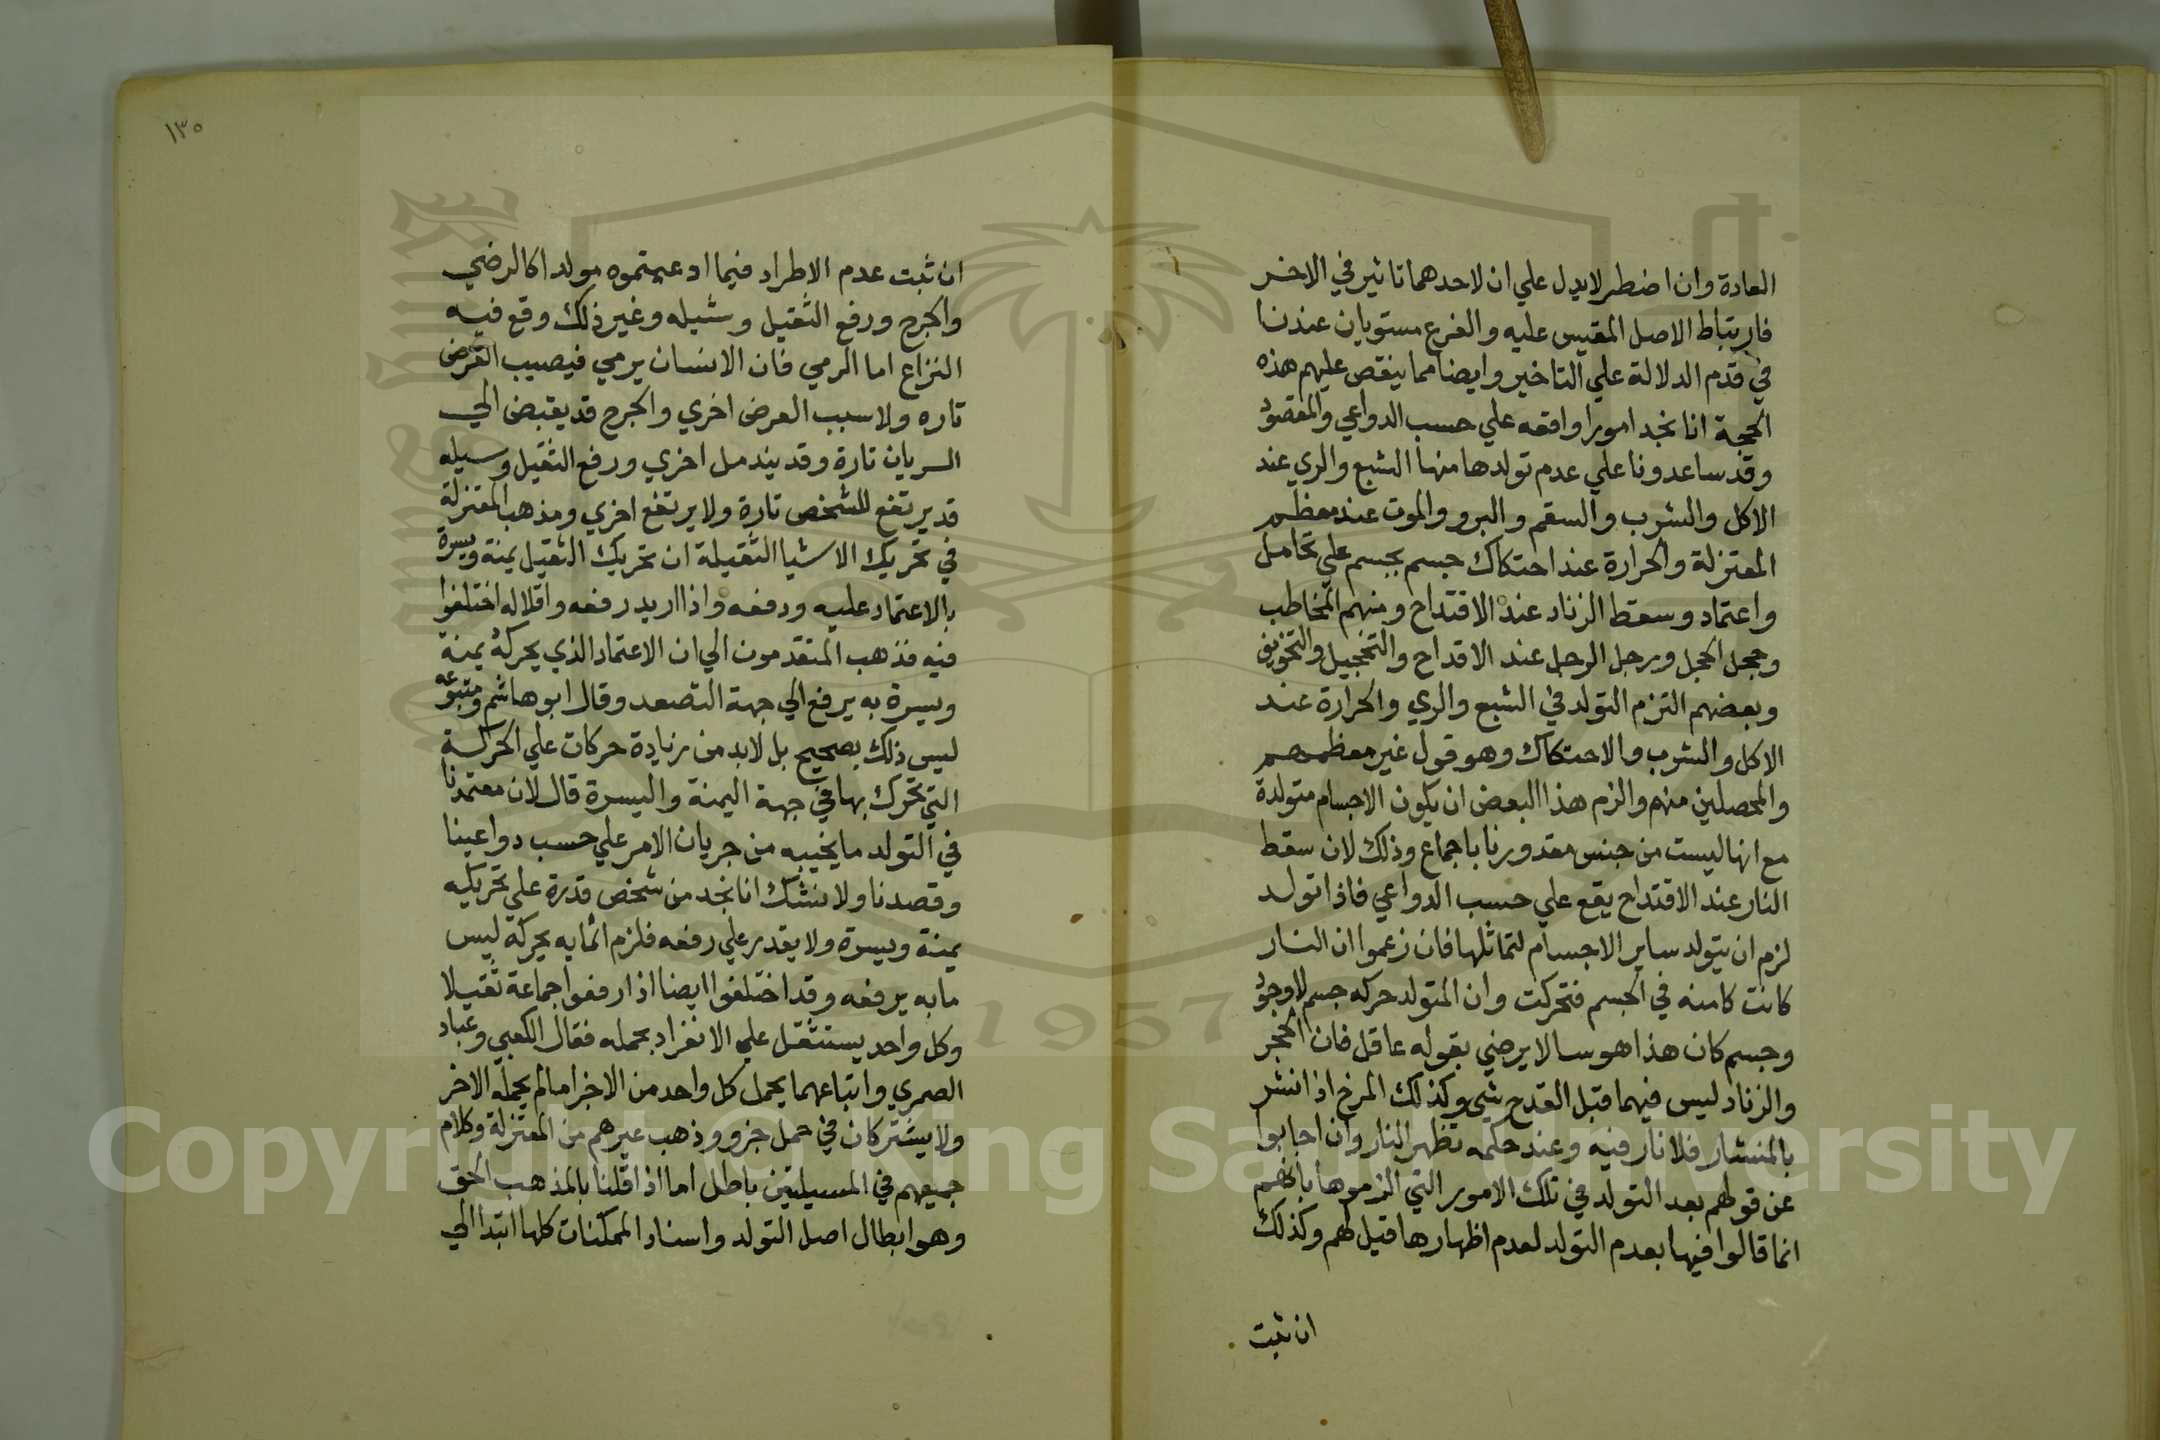 العادة وان اضطر لا يدل علي ان لاحدهما تاثير في الاخر
فارتباط الاصل المقيس عليه والفرع مستويان عندنا
في قدم الدلالة علي التاخير وايضا مما ينقص عليهم هذه
الحجة انا نجد امورا واقعه علي حسب الدواعي والمقصود
وقد ساعدونا علي عدم تولدها منها الشبع والري عند
الاكل والشرب والسقم والبرو والموت عند معظم
المعتزلة والحرارة عند احتكاك جسم بجسم علي تحامل
واعتماد وسقط الزناد عند الاقتداح ومنهم المخاطب
وخجل الخجل ووجل الوجل عند الاقداح والتخجيل والتخويف
وبعضهم التزم التولد في الشبع والري والحرارة عند
الاكل والشرب والاحتكاك وهو قول غير معظمهم
والمحصلين منهم والزم هذا البعض ان يكون الاجسام متولدة
مع انها ليست من جنس مقدورنا باجماع وذلك لان سقط
النار عند الاقتداح يقع علي حسب الدواعي فاذا تولد
لزم ان يتولد ساير الاجسام لتماثلها فان زعموا ان النار
كانت كامنه في الجسم فتحركت وان المتولد حركه جسم لا وجود
وجسم كان هذا هوسا لا يرضي بقوله عاقل فان الحجر
والزناد ليس فيهما قبل القدح شي وكذلك المرخ اذا نشر
بالمنشار فلا نار فيه وعند حكمه تظهر النار وان اجابوا
عن قولهم بعد التولد في تلك الامور التي الزموها بانهم
انما قالوا فيها بعدم التولد لعدم اظهارها قيل لهم وكذلك
ان ثبت
١٣٥
ان ثبت عدم الاطراد فيما ادعيتموه مولدا كالرضي
والجرح ورفع الثقيل وشيله وغير ذلك وقع فيه
النزاع اما الرمي فان الانسان يرمي فيصيب الغرض
تاره ولا سبب العرض اخري والجرح قد يقبض الي
السريان تارة وقد يندمل اخري ورفع الثقيل وسيله
قد يرتفع للشخص تارة ولا يرتفع اخري ومذهب المعتزلة
في تحريك الاشيا الثقيلة ان تحريك الثقيل يمنة ويسرة
بالاعتماد عليه ودفعه واذا اريد رفعه واقلاله اختلفوا
فيه فذهب المتقدمون الي ان الاعتماد الذي يحركه يمنة
ويسرة به يرفع الي جهة التصعد وقال ابو هاشم ومتبوعه
ليس ذلك بصحيح بل لابد من زيادة حركات علي الحركة
التي تحرك بها في جهة اليمنة واليسرة قال لان معتمدنا
في التولد ما يخيبه من جريان الامر علي حسب دواعينا
وقصدنا ولا نشك انا نجد من شخص قدرة علي تحريكه
يمنة ويسرة ولا يقدر علي رفعه فلزم انما به يحركه ليس
ما به يرفعه وقد اختلفوا ايضا اذا رفعوا جماعة ثقيلا
وكل واحد يستثقل علي الانفراد بحمله فقال الكعبي وعباد
الصمري واتباعهما يحمل كل واحد من الاجزا ما لم يحمله الاخر
ولا يشتركان في حمل جزو وذهب غيرهم من المعتزلة وكلام
جميعهم في المسيلتين باطل اما اذا قلنا بالمذهب الحق
وهو ابطال اصل التولد واسناد الممكنات كلها ابتدا الي
Copyright © King Saud University
1957